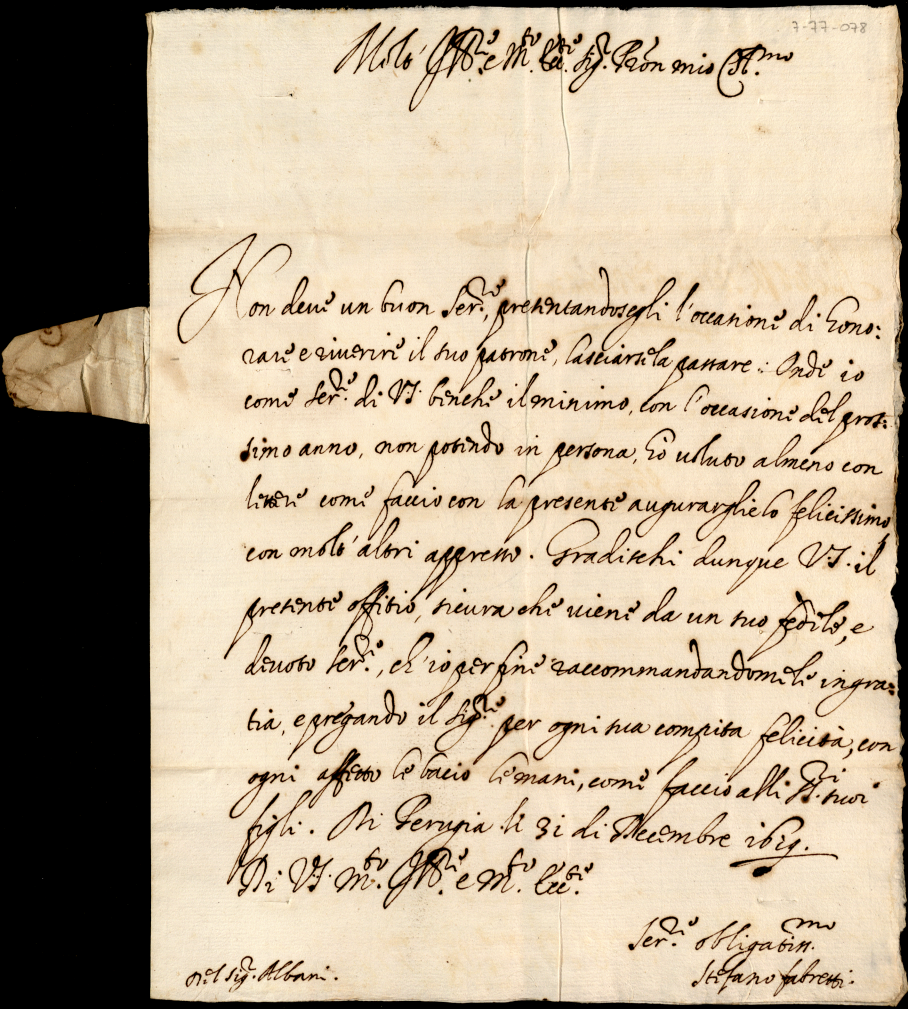 7-77-078
Molt' Ill.re e M.to Ecc.te Sig.r P'ron mio Col.mo
Non deve un buon Ser.re, presentandosegli l'occasione di hono:
rare e riverire il suo patrone, lasciarsela passare: Onde io
come Ser.re di V.S. benche il minimo, con l'occasione del pros:
simo anno, non potendo in persona, hò voluto almeno con
lettere come faccio con la presente augurarglielo felicissimo
con molt' altri appresso. Gradischi dunque V.S. il
presente offitio, sicura che viene da un suo fedele, e
devoto ser.re, ch' io per fine raccommandandomele in gra:
tia, e pregando il Sig.re per ogni sua compita felicità, con
ogni affetto le bacio le mani, come faccio alli SS.ri suoi
figli. Di Perugia li 31 di Decembre 1619.
Di V.S. M.to Ill.re e M.to Ecc.te
Ser.re obligatiss.mo
Del Sig.r Albani.
Stefano fabretti.